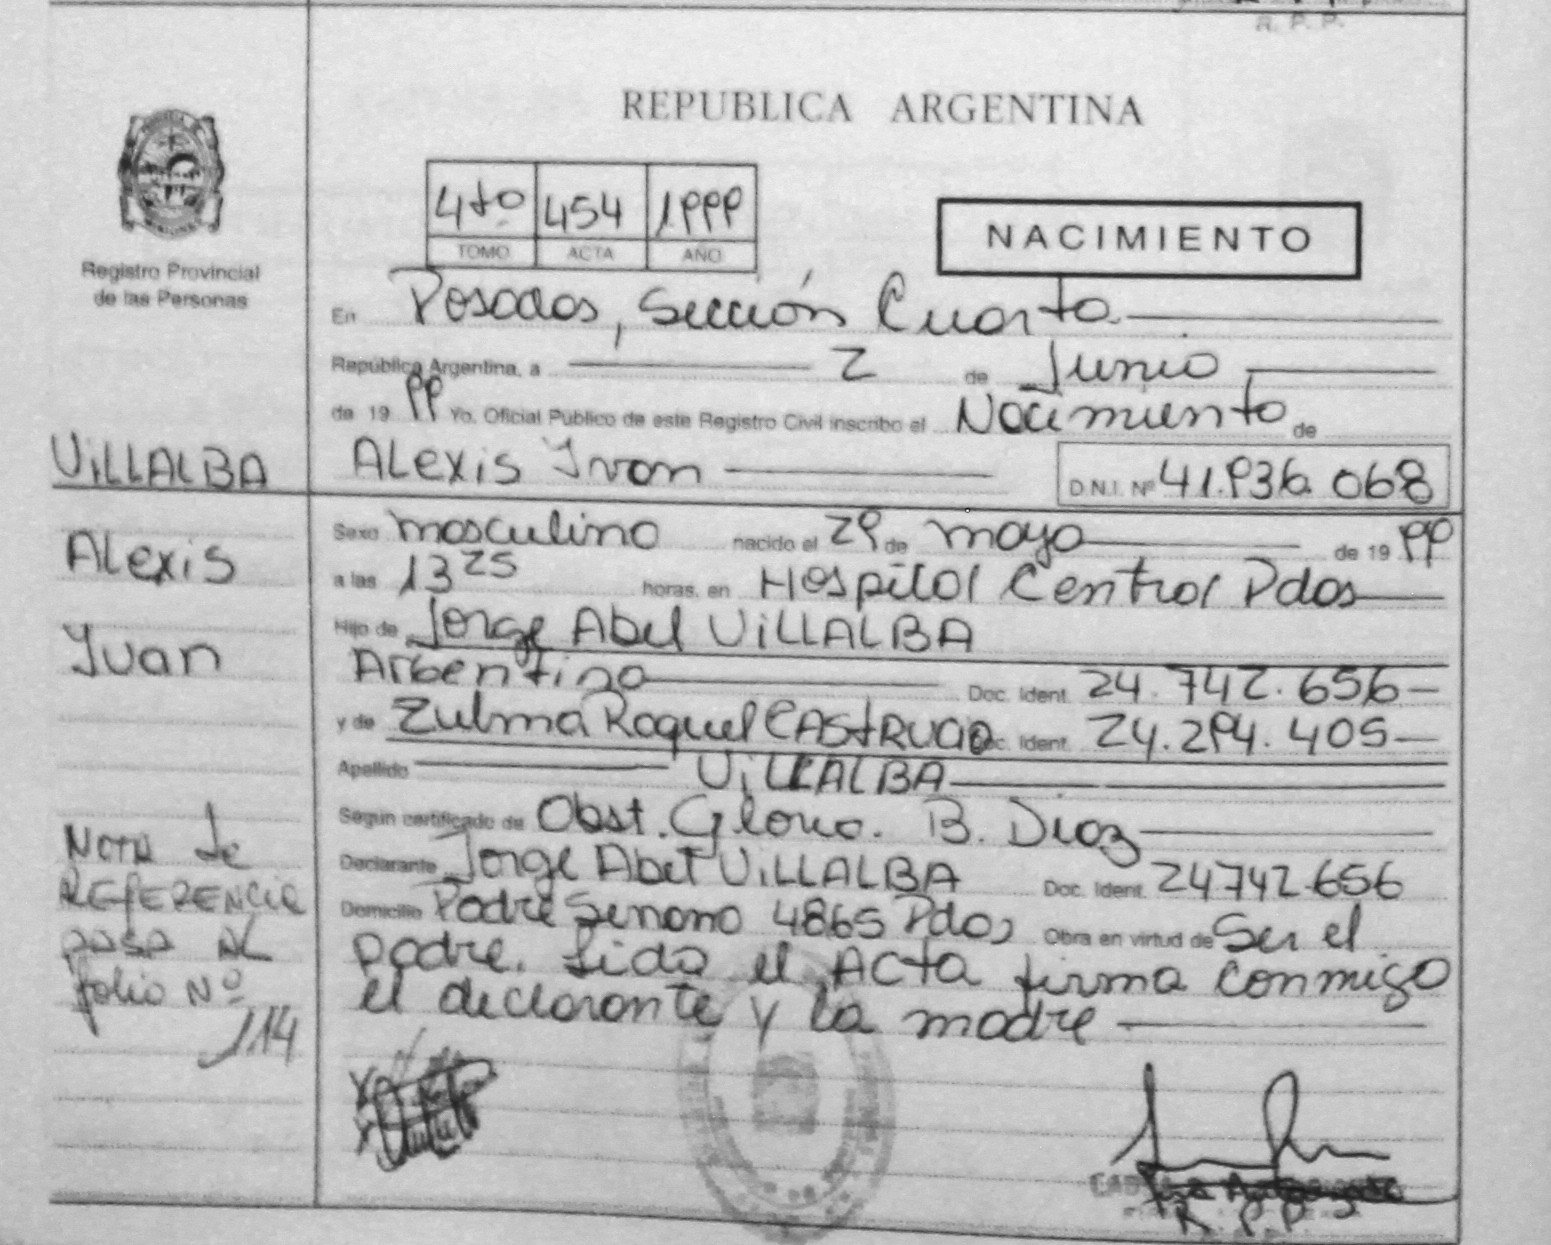 R. P. P.
REPUBLICA ARGENTINA
4to 454 1999
TOMO ACTA AÑO
NACIMIENTO
Registro Provincial
de las Personas
En Posadas, Sección Cuarta
República Argentina, a 2 de Junio
de 19 99 Yo, Oficial Público de este Registro Civil inscribo el Nacimiento de
VILLALBA Alexis Ivan D.N.I. Nº 41.936.068
Sexo masculino nacido el 29 de mayo de 19 99
Alexis
a las 13 25 horas, en Hospital Central Pdas
Hijo de Jorge Abel VILLALBA
Ivan
Argentino Doc. Ident. 24.742.656
y de Zulma Raquel Doc. Ident. 24.294.405
Apellido VILLALBA
Según certificado de Obst. Gloria. B. Diaz
Declarante Jorge Abel VILLALBA Doc. Ident. 24742.656
Domicilio Padre Serrano 4865 Pdas Obra en virtud de Ser el
padre. Lida el Acta firma conmigo
el declarante y la madre
Nota de
REFERENCIA
pasa AL
folio Nº
114
R. P. P.